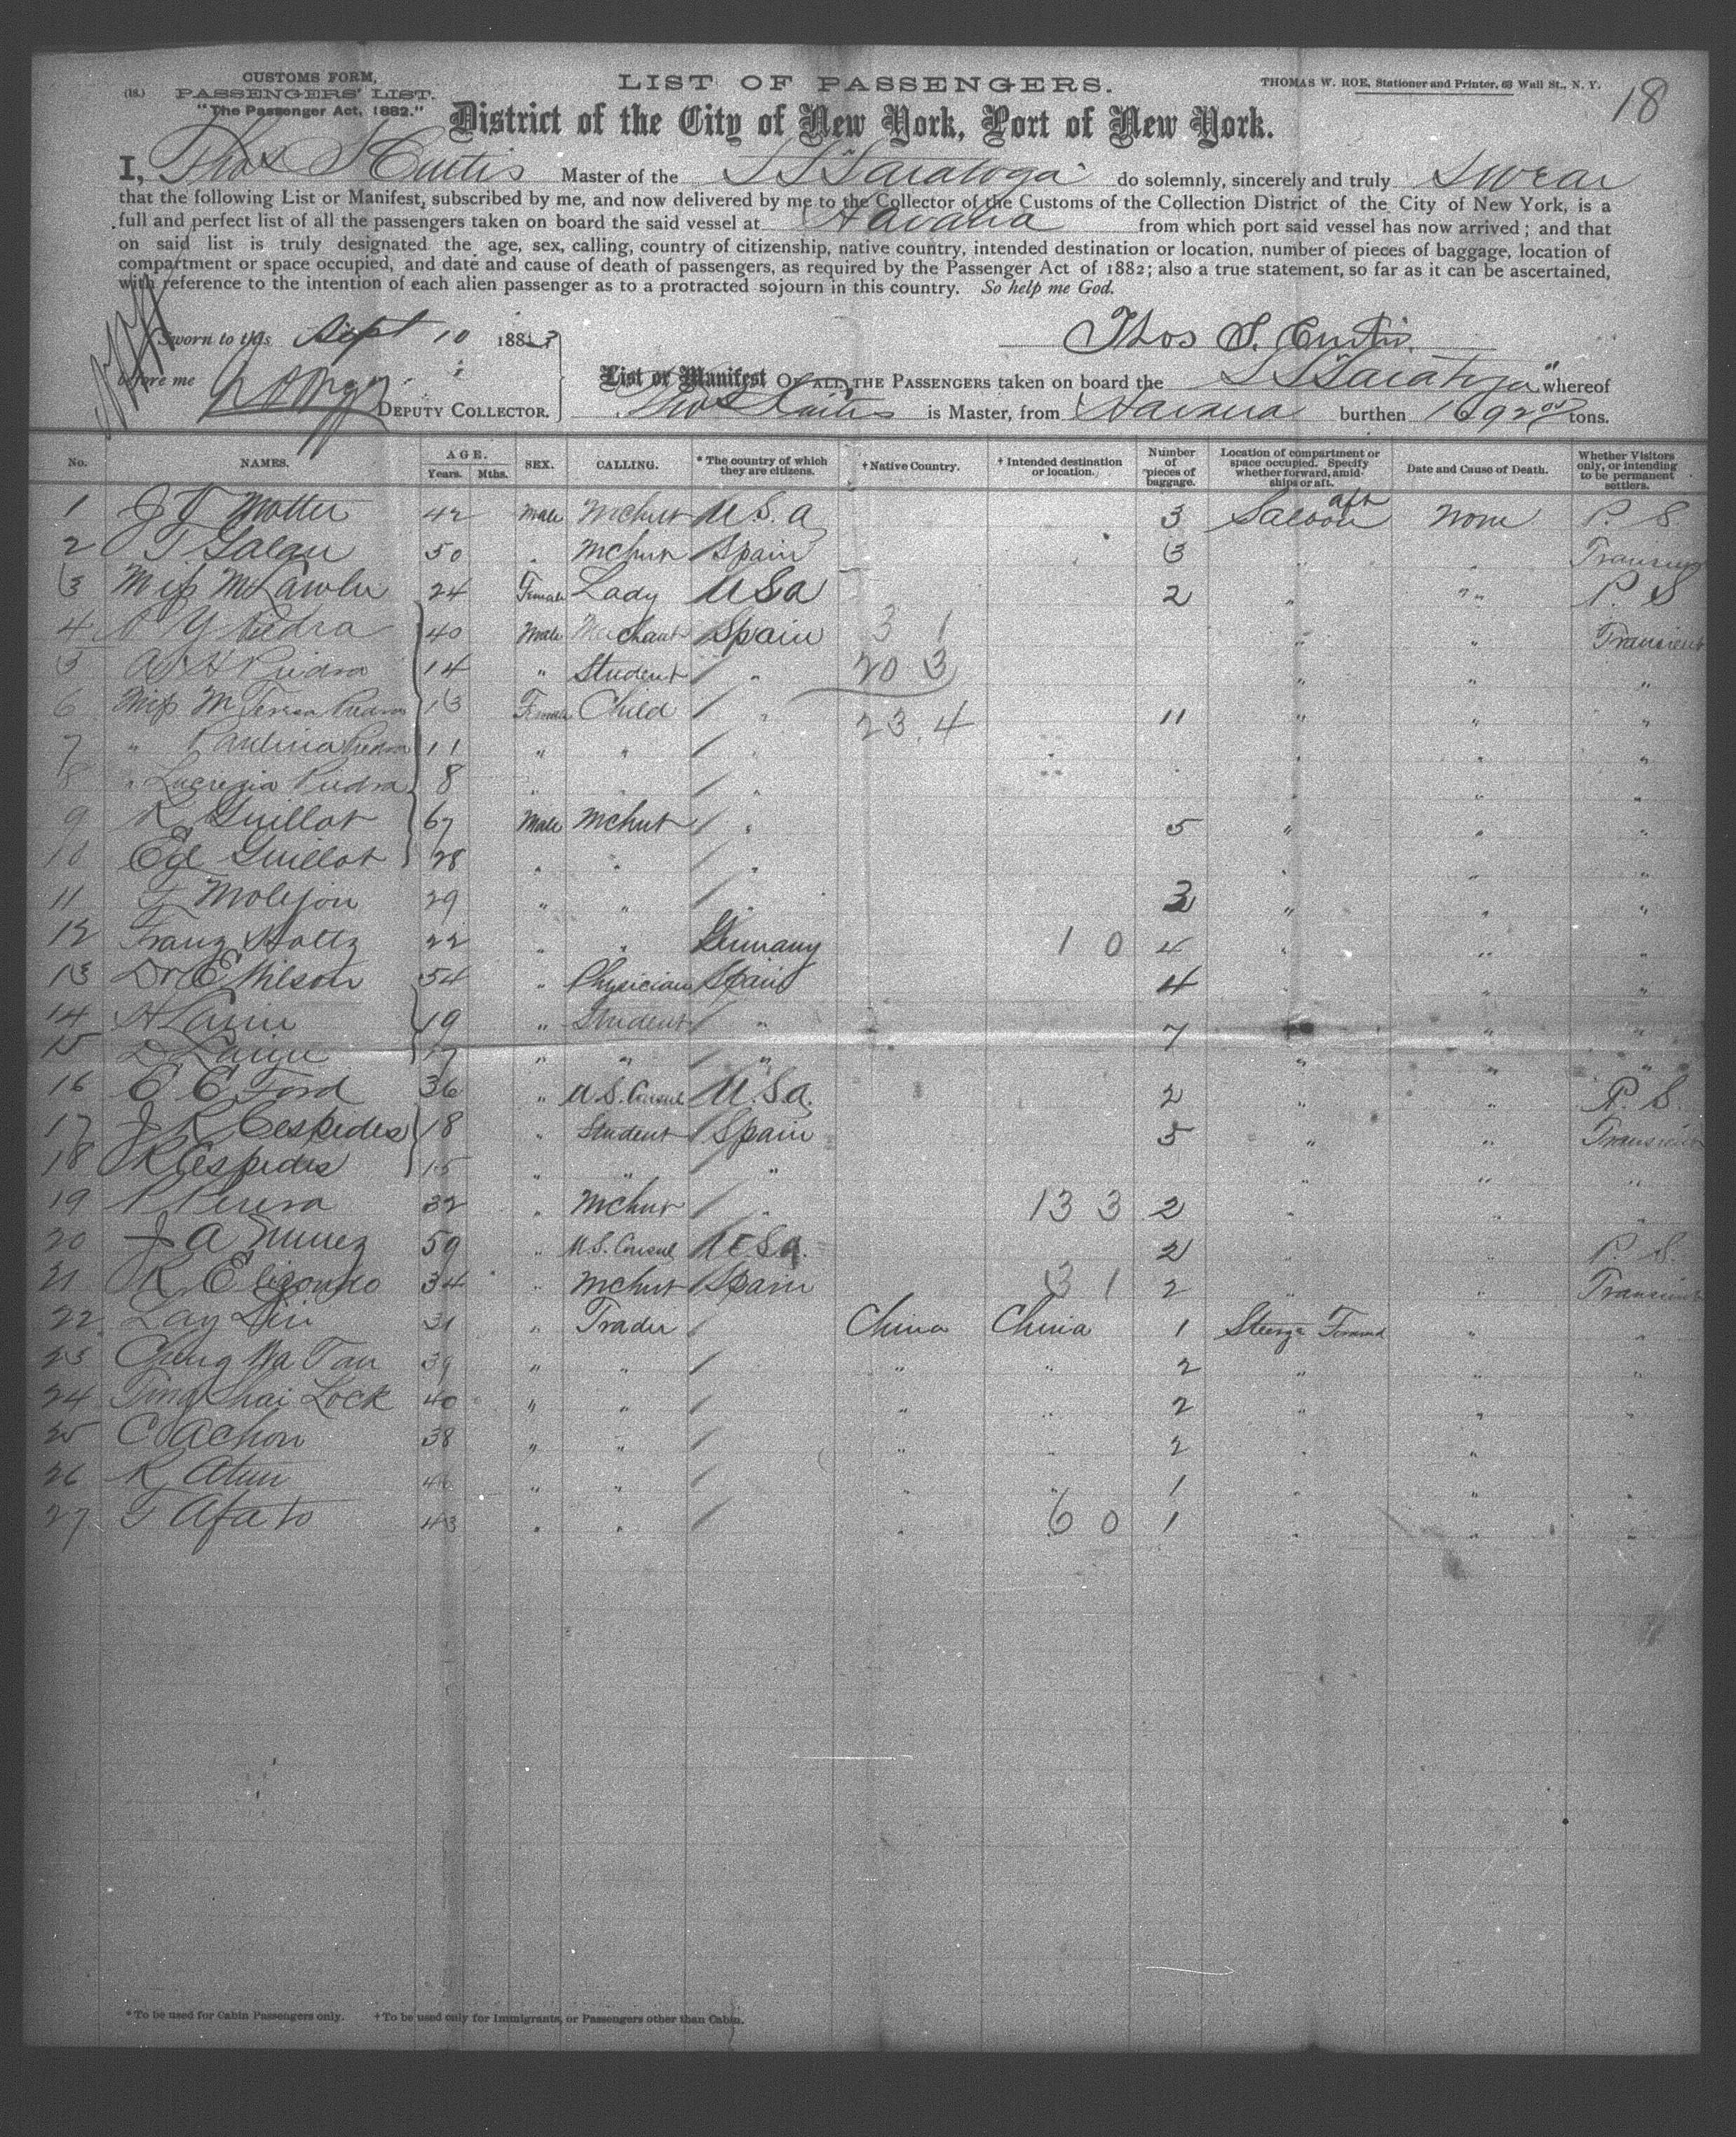 CUSTOMS FORM,
(18.) PASSENGERS' LIST.
"The Passenger Act, 1882."
LIST OF PASSENGERS.
THOMAS W. ROE, Stationer and Printer, 63 Wall St., N. Y.
18
District of the City of New York, Port of New York.
I, Thos S Curtis Master of the SS "Saratoga" do solemnly, sincerely and truly Swear
that the following List or Manifest, subscribed by me, and now delivered by me to the Collector of the Customs of the Collection District of the City of New York, is a
full and perfect list of all the passengers taken on board the said vessel at Havana from which port said vessel has now arrived; and that
on said list is truly designated the age, sex, calling, country of citizenship, native country, intended destination or location, number of pieces of baggage, location of
compartment or space occupied, and date and cause of death of passengers, as required by the Passenger Act of 1882; also a true statement, so far as it can be ascertained,
with reference to the intention of each alien passenger as to a protracted sojourn in this country. So help me God.
Sworn to this Sept 10 1883
Thos S. Curtis
before me
DEPUTY COLLECTOR.
List or Manifest OF ALL THE PASSENGERS taken on board the SS "Saratoga" whereof
Thos S Curtis is Master, from Havana burthen 1692 tons.
No. NAMES. AGE. Years. Mths. SEX. CALLING. * The country of which they are citizens. † Native Country. † Intended destination or location. Number of pieces of baggage. Location of compartment or space occupied. Specify whether forward, amidships or aft. Date and Cause of Death. Whether Visitors only, or intending to be permanent settlers.
1 J F Motter 42 Male Mchnt U.S.a 3 Saloon aft None P. S
2 T Galan 50 " Mchnt Spain 3 " " Transient
3 Miss M Lawler 24 Female Lady USa 2 " " " P. S
4 P Y Piedra 40 Male Merchant Spain 3 1 " " Transient
5 A H Piedra 14 " Student " 20 3 " " "
6 Miss M Teresa Piedra 13 Female Child " 23.4 11 " " "
7 " Paulina Piedra 11 " " " " " "
8 " Lucrezia Piedra 8 " " " " " "
9 R Guillot 67 Male Mchnt " 5 " " "
10 Ed Guillot 28 " " " " " "
11 F Molejon 29 " " " 3 " " "
12 Franz Holtz 22 " " Germany 1 0 4 " " "
13 Dr E Wilson 54 " Physician Spain 4 " " "
14 H Laine 19 " Student " 7 " " "
15 D Laine 17 " " " " " "
16 E C Ford 36 " U.S. Consul U.S.a. 2 " " P. S.
17 J R Cespedes 18 " Student Spain 5 " " Transient
18 R Cespedes 15 " " " " " "
19 P Perera 32 " Mchnt " 13 3 2 " " "
20 J A Nunez 59 " U.S. Consul U.S.a. 2 " P. S.
21 R Elizondo 34 " Mchnt Spain 3 1 2 " " Transient
22 Lay Din 31 " Trader China China 1 Steerge Forward " "
23 Chung Wa Tan 39 " " " " 2 " " "
24 Ting Shai Lock 40 " " " " 2 " " "
25 C Achon 38 " " " " 2 " "
26 R Atun " " " " 1 " " "
27 T Afato 43 " " " 6 0 1 " " "
* To be used for Cabin Passengers only. † To be used only for Immigrants, or Passengers other than Cabin.